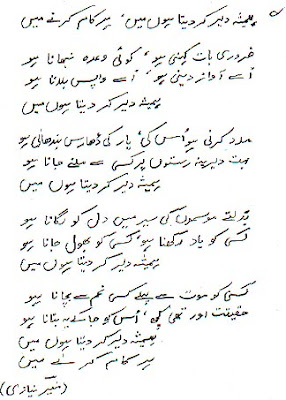 ہمیشہ دیر کر دیتا ہوں میں، ہر کام کرنے میں
ضروری بات کہنی ہو، کوئی وعدہ نبھانا ہو
اُسے آواز دینی ہو، اُسے واپس بلانا ہو
ہمیشہ دیر کر دیتا ہوں میں
مدد کرنی ہو اُس کی، یار کی ڈھارس بندھانی ہو
بہت دیرینہ رستوں پر کسی سے ملنے جانا ہو
ہمیشہ دیر کر دیتا ہوں میں
بدلتے موسموں کی سیر میں دل کو لگانا ہو
کسی کو یاد رکھنا ہو، کسی کو بھول جانا ہو
ہمیشہ دیر کر دیتا ہوں میں
کسی کو موت سے پہلے کسی غم سے بچانا ہو
حقیقت اور تھی کچھ، اُس کو جا کے یہ بتانا ہو
ہمیشہ دیر کر دیتا ہوں میں
ہر کام کرنے میں
(منیر نیازی)